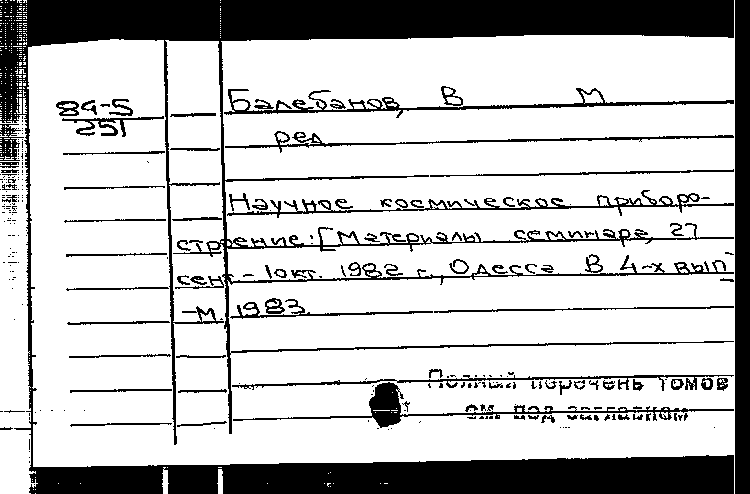 84-5
251
Балебанов, В М
ред
Научное космическое приборо-
строение: [Материалы семинара, 27
сент.- 1окт. 1982 г., Одесса В 4-х вып
-М. 1983.
Полный перечень томов
см. под заглавием